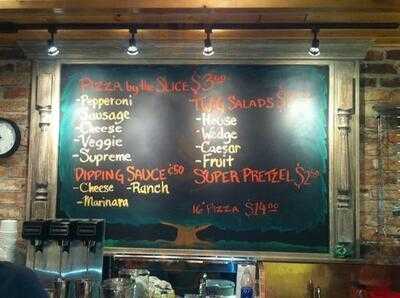 PIZZA by the SLICE $3.50
-Pepperoni
-Sausage
-Cheese
-Veggie
-Supreme
DIPPING SAUCE ¢50
-Cheese -Ranch
-Marinara
SALADS
-House
-Wedge
-Caesar
-Fruit
SUPER PRETZEL $2.50
16" PIZZA $14.00